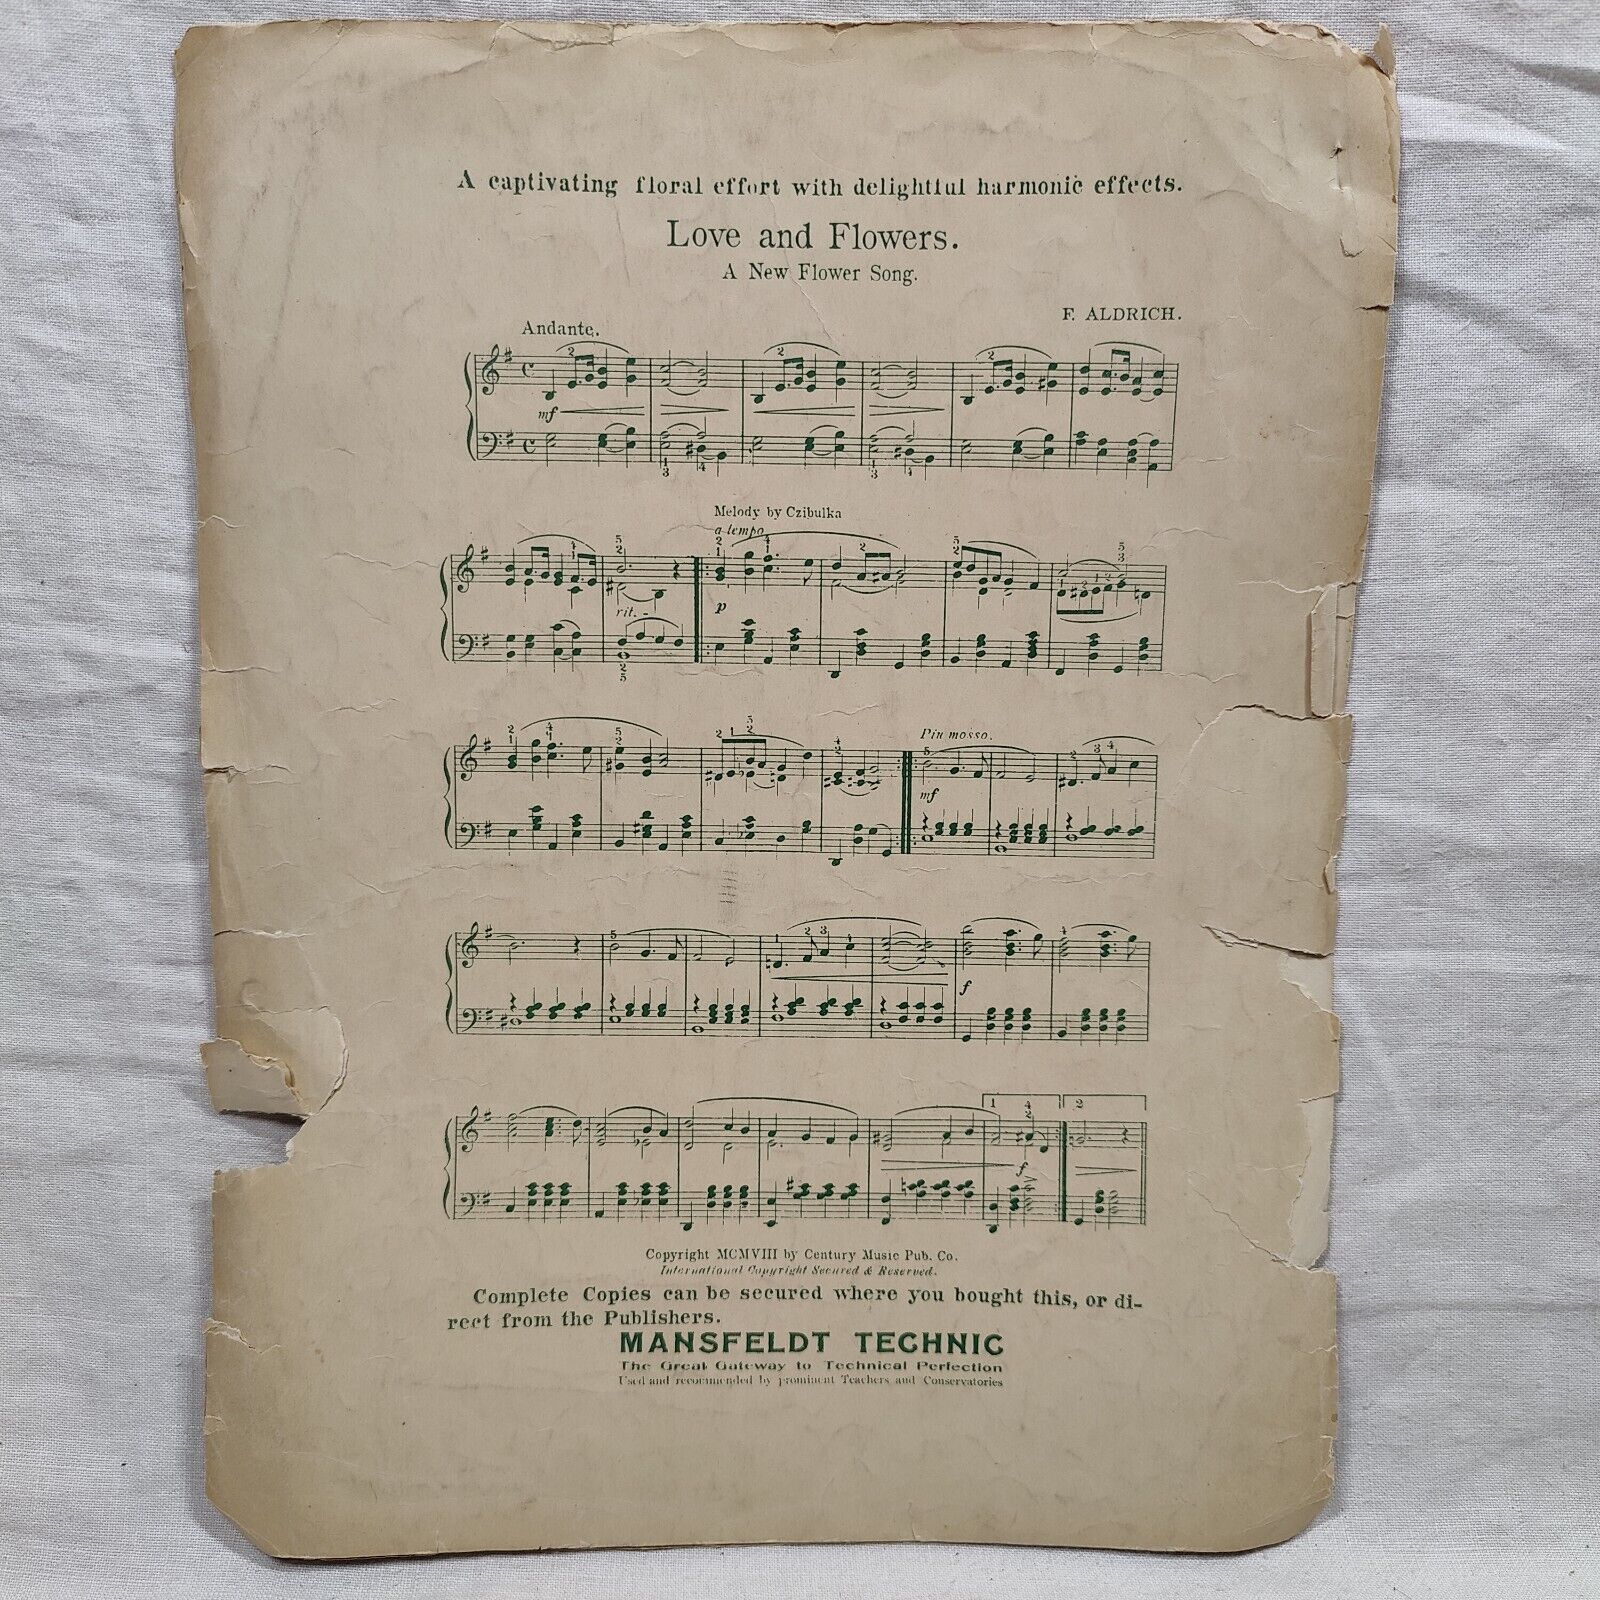 A captivating floral effort with delightful harmonic effects.
Love and Flowers.
A New Flower Song.
F. ALDRICH.
Andante.
mf
Melody by Czibulka
a tempo
rit.
p
Piu mosso.
mf
f
1 2
f
Copyright MCMVIII by Century Music Pub. Co.
International Copyright Secured & Reserved.
Complete Copies can be secured where you bought this, or di-
rect from the Publishers.
MANSFELDT TECHNIC
The Great Gateway to Technical Perfection
Used and recommended by prominent Teachers and Conservatories